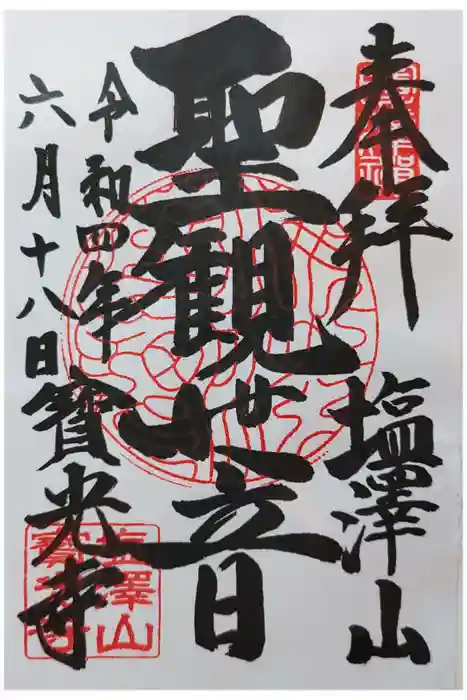 奉拝
塩澤山
聖観世音
令和四年
六月十八日
寳光寺
塩澤山
寳光寺